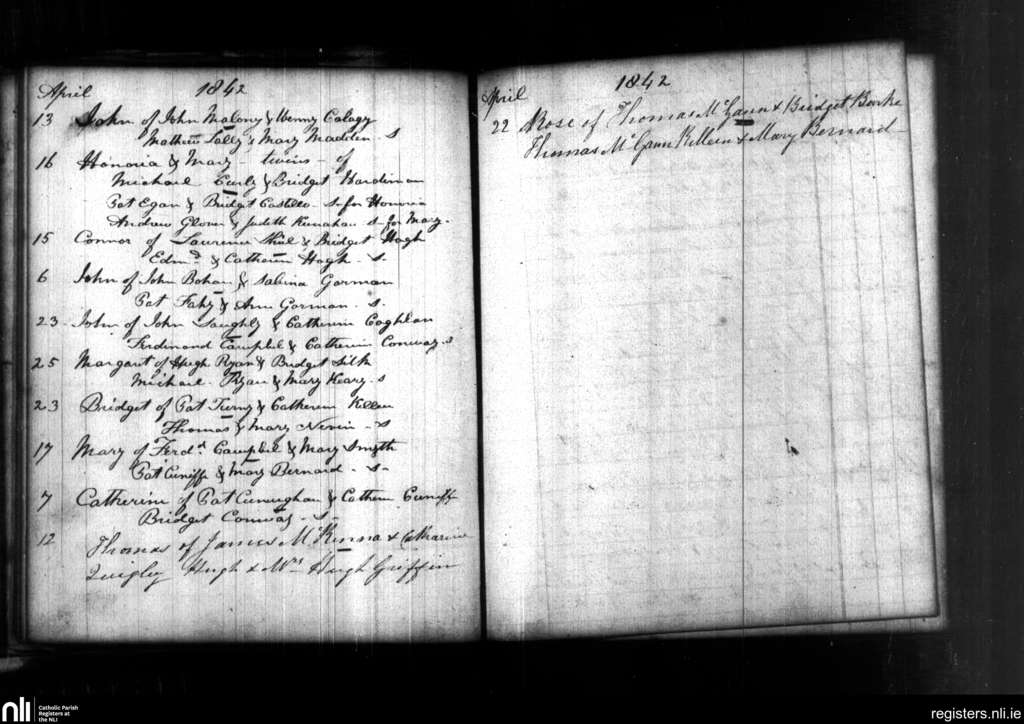 April 1842
13 John of John Malony & Wenny Calagy
Mathew Lally & Mary Madden - s
16 Honoria & Mary - twins - of
Michael Curly & Bridget Hardiman
Pat Egan & Bridget Costello - s for Honoria
Andrew Glover & Judith s - for Mary.
15 Connor of Laurence & Bridget Hogh
Edmd & Catherine Hogh - s.
6 John of John Bohan & Sabina Gorman
Pat Fahy & Ann Gorman - s.
23 John of John & Catherine Coghlan
Ferdinand Campbel & Catherin Conway - s
25 Margaret of Hugh Ryan & Bridget Silk
Michael Ryan & Mary Keary - s
23 Bridget of Pat & Catherin Killen
Thomas & Mary Nevin - s
17 Mary of Ferdd Campbel & Mary Smyth
Pat Cuniffe & Mary Bernard - s -
7 Catherine of Pat Cunnighan & Cathern Cuniff
Bridget Conway - s -
12 Thomas of James McKenna & Catharine
Quigley Hugh & Mrs Hugh Griffin
April 1842
22 Rose of Thomas McGann & Bridget Burke
Thomas McGann Killeen & Mary Bernard
nli Catholic Parish
Registers at
the NLI
registers.nli.ie